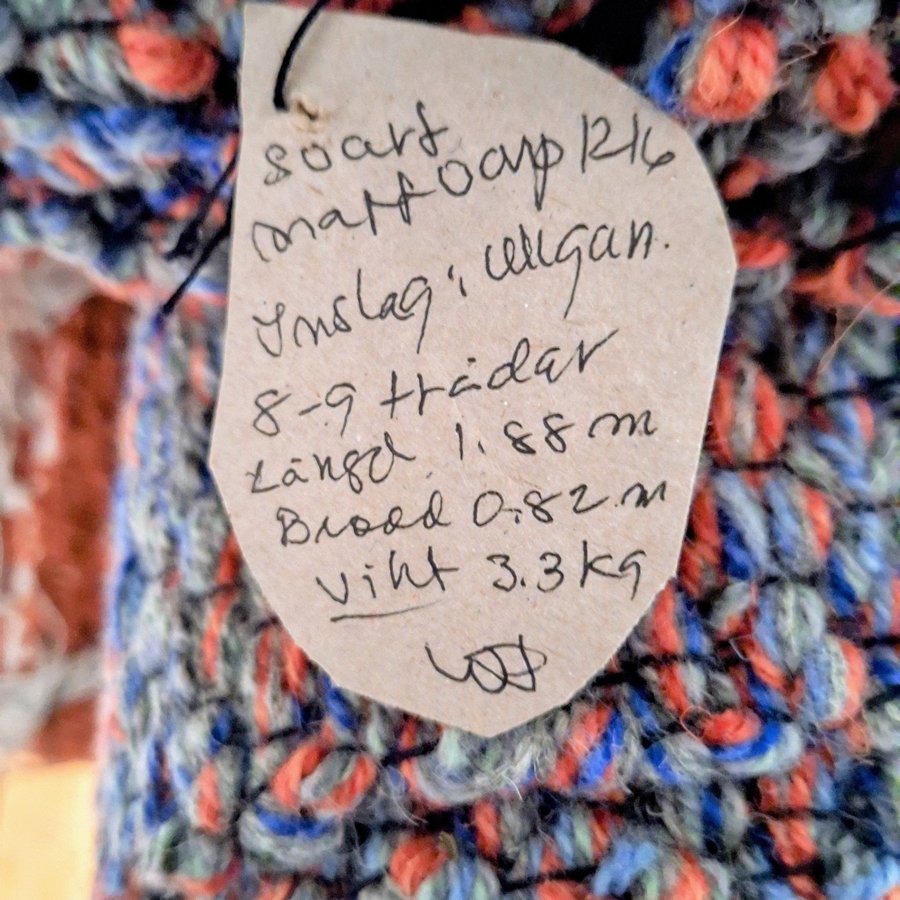 svart
mattvarp 12/6
Inslag: ullgarn.
8-9 trådar
Längd. 1.88 m
Bredd 0.82 m
Vikt 3.3 kg